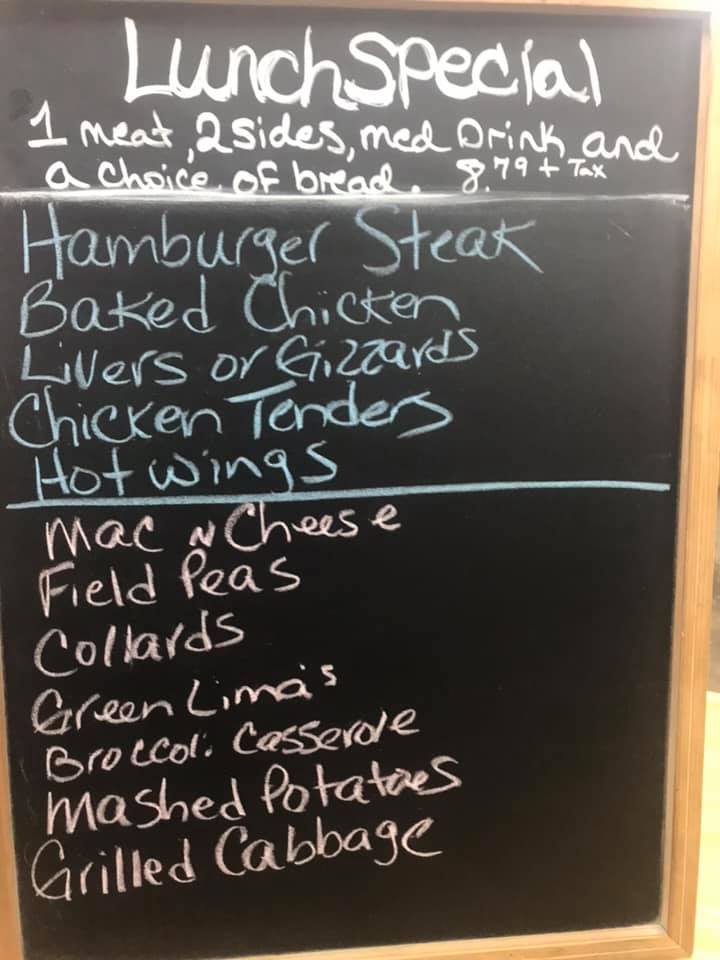 Lunch Special
1 meat, 2 sides, med Drink and
a choice of bread. 8.79 + Tax
Hamburger Steak
Baked Chicken
Livers or Gizzards
Chicken Tenders
Hot wings
Mac N Cheese
Field Peas
Collards
Green Lima's
Broccoli Casserole
Mashed Potatoes
Grilled Cabbage